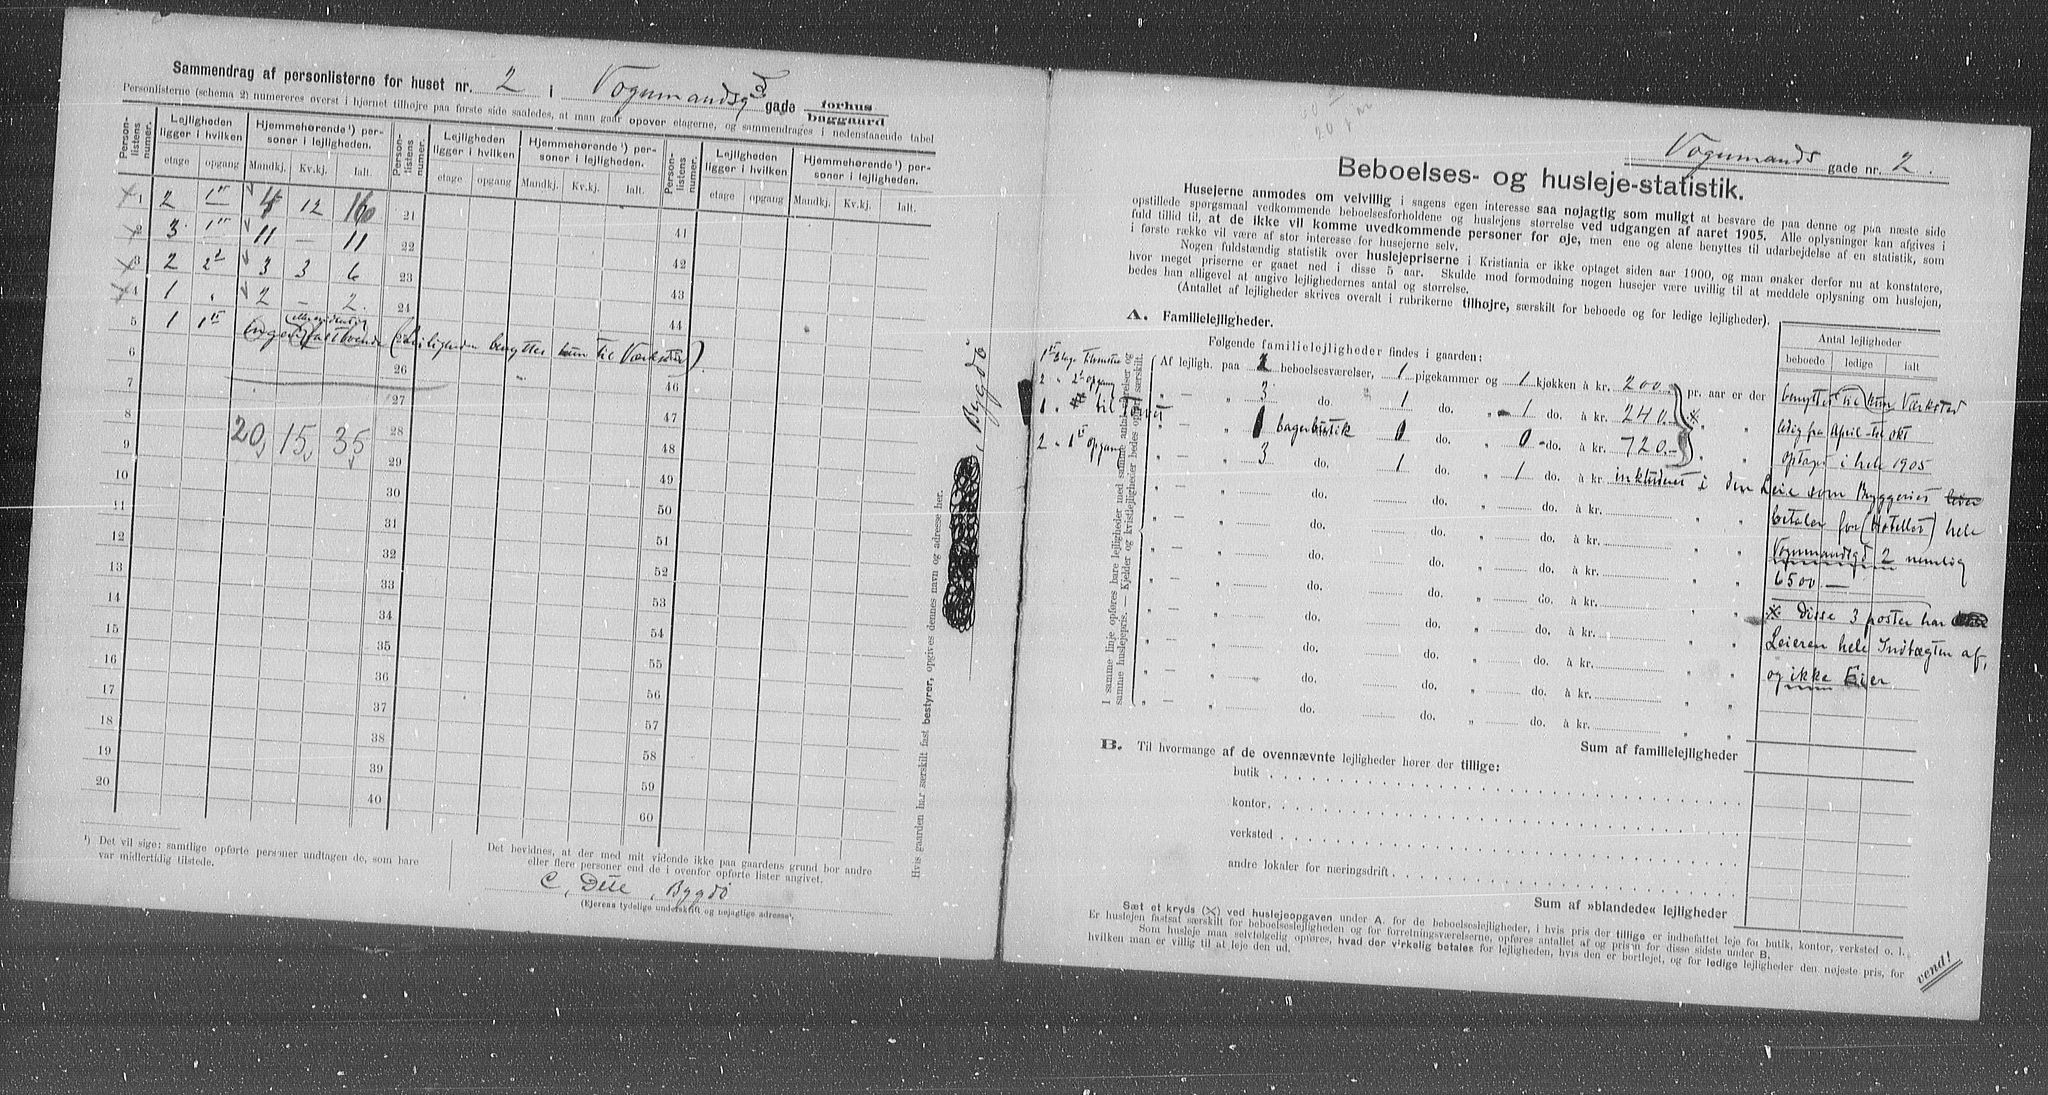 Sammendrag af personlisterne for huset nr. 2 i Vognmandsg gade forhus baggaard
Personlisterne (schema 2) numereres øverst i hjørnet tilhøjre paa første side saaledes, at man gaar opover etagerne, og sammendrages i nedenstaaende tabel
Person-listens numer. Lejligheden ligger i hvilken Hjemmehørende¹) personer i lejligheden. Person-listens numer. Lejligheden ligger i hvilken Hjemmehørende¹) personer i lejligheden. Person-listens numer. Lejligheden ligger i hvilken Hjemmehørende¹) personer i lejligheden.
etage opgang Mandkj. Kv.kj. Ialt. etage opgang Mandkj. Kv.kj. Ialt. etage opgang Mandkj. Kv.kj. Ialt.
1 2 1 4 12 16 21 41
2 3 1 11 — 11 22 42
3 2 2 3 3 6 23 43
4 1 2 — 2 24 44
5 1 1 Ingen fastboende (Leiligheden benyttes kun til Værksted)
6 26 46
7 27 47
8 20 15 35 28 48
9 29 49
10 30 50
11 31 51
12 32 52
13 33 53
14 34 54
15 35 55
16 36 56
17 37 57
18 38 58
19 39 59
20 40 60
¹) Det vil sige: samtlige opførte personer undtagen de, som bare
var midlertidig tilstede.
Det bevidnes, at der med mit vidende ikke paa gaardens grund bor andre
eller flere personer end de i ovenfor opførte lister angivet.
C. Dete, Bygdø
(Ejerens tydelige underskrift og nøjagtige adresse).
Hvis gaarden har særskilt fast bestyrer, opgives dennes navn og adresse her.
Bygdø
Vognmands gade nr. 2.
Beboelses- og husleje-statistik.
Husejerne anmodes om velvillig i sagens egen interesse saa nøjagtig som muligt at besvare de paa denne og paa næste side
opstillede spørgsmaal vedkommende beboelsesforholdene og huslejens størrelse ved udgangen af aaret 1905. Alle oplysninger kan afgives i
fuld tillid til, at de ikke vil komme uvedkommende personer for øje, men ene og alene benyttes til udarbejdelse af en statistik, som
i første række vil være af stor interesse for husejerne selv.
Nogen fuldstændig statistik over huslejepriserne i Kristiania er ikke optaget siden aar 1900, og man ønsker derfor nu at konstatere,
hvor meget priserne er gaaet ned i disse 5 aar. Skulde mod formodning nogen husejer være uvillig til at meddele oplysning om huslejen,
bedes han alligevel at angive lejlighedernes antal og størrelse.
(Antallet af lejligheder skrives overalt i rubrikerne tilhøjre, særskilt for beboede og for ledige lejligheder).
A. Familielejligheder.
Følgende familielejligheder findes i gaarden:
Antal lejligheder
beboede ledige ialt
I samme linje opføres bare lejligheder med samme antal værelser og
samme huslejepris. — Kjelder og kvistlejligheder bedes opført særskilt.
Af lejligh. paa 1 beboelsesværelser, 1 pigekammer og 1 kjøkken à kr. 200 pr. aar er der benyttes til kun Værksted
2 " 2' opgang " — " 3 do. 1 do. " 1 do. à kr. 240 " " ledig fra April til Okt
" — " 1 bagerbutik 0 do. " 0 do. à kr. 720.- " " optaget i hele 1905
2 " 1 opgang " — " 3 do. 1 do. " 1 do. à kr. inkluderet i den Leie som Bryggeriet
" — " do. do. " do. à kr. " " betaler for (Hotellet) hele
" — " do. do. " do. à kr. " " Vognmandsgd 2 nemlig
" — " do. do. " do. à kr. " " 6500 —
" — " do. do. " do. à kr. " " Disse 3 poster har
" — " do. do. " do. à kr. " " Leieren hele Indtægten af,
" — " do. do. " do. à kr. " " og ikke Eier
" — " do. do. " do. à kr. " "
" — " do. do. " do. à kr. " "
Sum af familielejligheder
B. Til hvormange af de ovennævnte lejligheder hører der tillige:
butik
kontor
verksted
andre lokaler for næringsdrift
Sum af »blandede« lejligheder
Sæt et kryds (×) ved huslejeopgaven under A. for de beboelseslejligheder, i hvis pris der tillige er indbefattet leje for butik, kontor, verksted o. l.
Er huslejen fastsat særskilt for beboelseslejligheden og for forretningsværelserne, opføres antallet af og prisen for disse sidste under B.
Som husleje maa selvfølgelig opføres, hvad der virkelig betales for lejligheden, hvis den er bortlejet, og for ledige lejligheder den nøjeste pris, for
hvilken man er villig til at leje den ud.
vend!